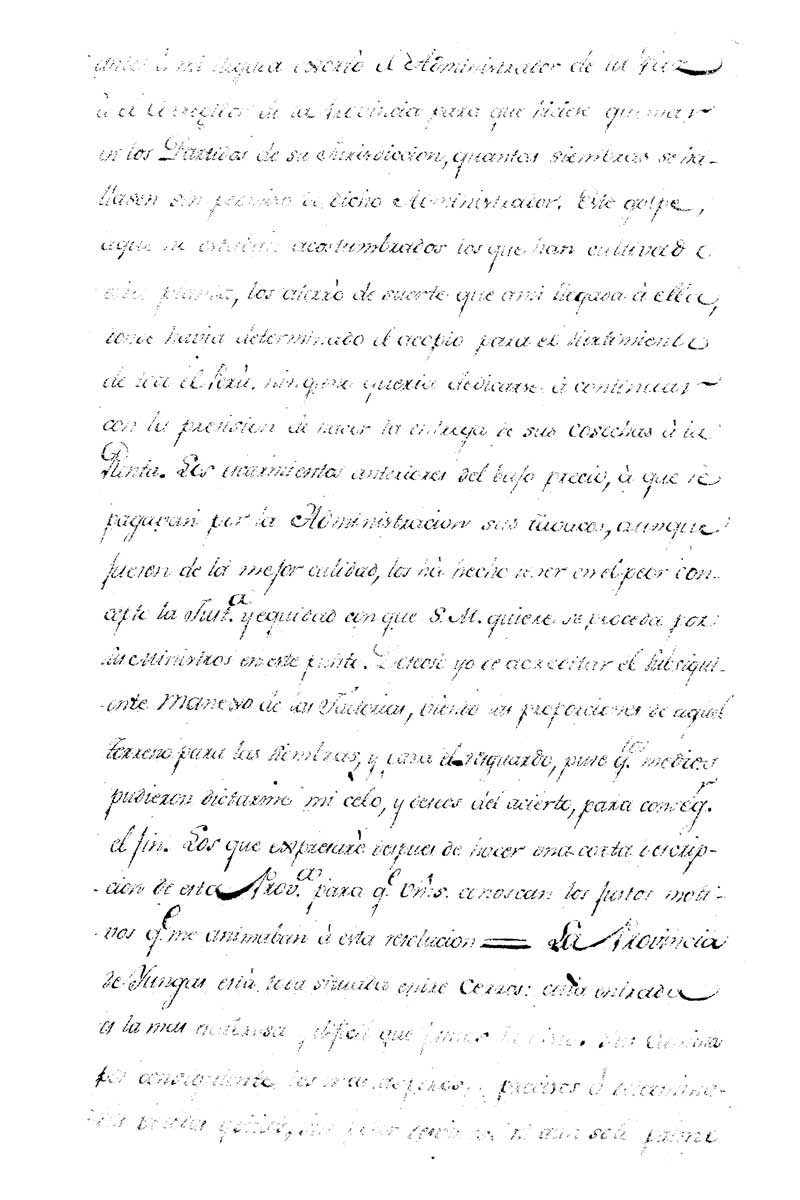 antes à mi llegada escrivió el Administrador de la Paz
à el Corregidor de la Provincia para que hiciese quemar
en los Partidos de su Jurisdiccion, quantas siembras se ha-
llasen sin permiso de dicho Administrador. Este golpe,
aque no estaban acostumbrados los que han cultivado
esta planta, los aterrò de suerte que ami llegada à ella,
donde havia determinado el acopio para el Surtimiento
de todo el Perù, ninguno queria dedicarse à continuar
con la pension de hacer la entrega de sus cosechas à la
Renta. Los escarmientos anteriores del bajo precio, à que se
pagavan por la Administracion sus tavacos, aunque
fuesen de la mejor calidad, los hà hecho tener en el peor con-
cepto la Just.ª y equidad con que S. M. quiere se proceda por
sus Ministros en este punto. Deseoso yo de acreditar el subsigui-
ente Manexo de las Factorias, viendo las proporciones de aquel
terreno para las siembras, y para el resguardo, puse q.tos medios
pudieron dictarme mi cèlo, y deseos del acierto, para conseg.r
el fin. Los que expresarè despues de hacer una corta descrip-
cion de esta Prov.ª para q.e Vm.s conoscan los justos moti-
vos q.e me animaban à esta resolucion = La Provincia
de Yungas està toda situada entre Cerros: cada entrada
es la mas dificil que
por consiguiente los mas asperos, y precisos à
ni aun solo